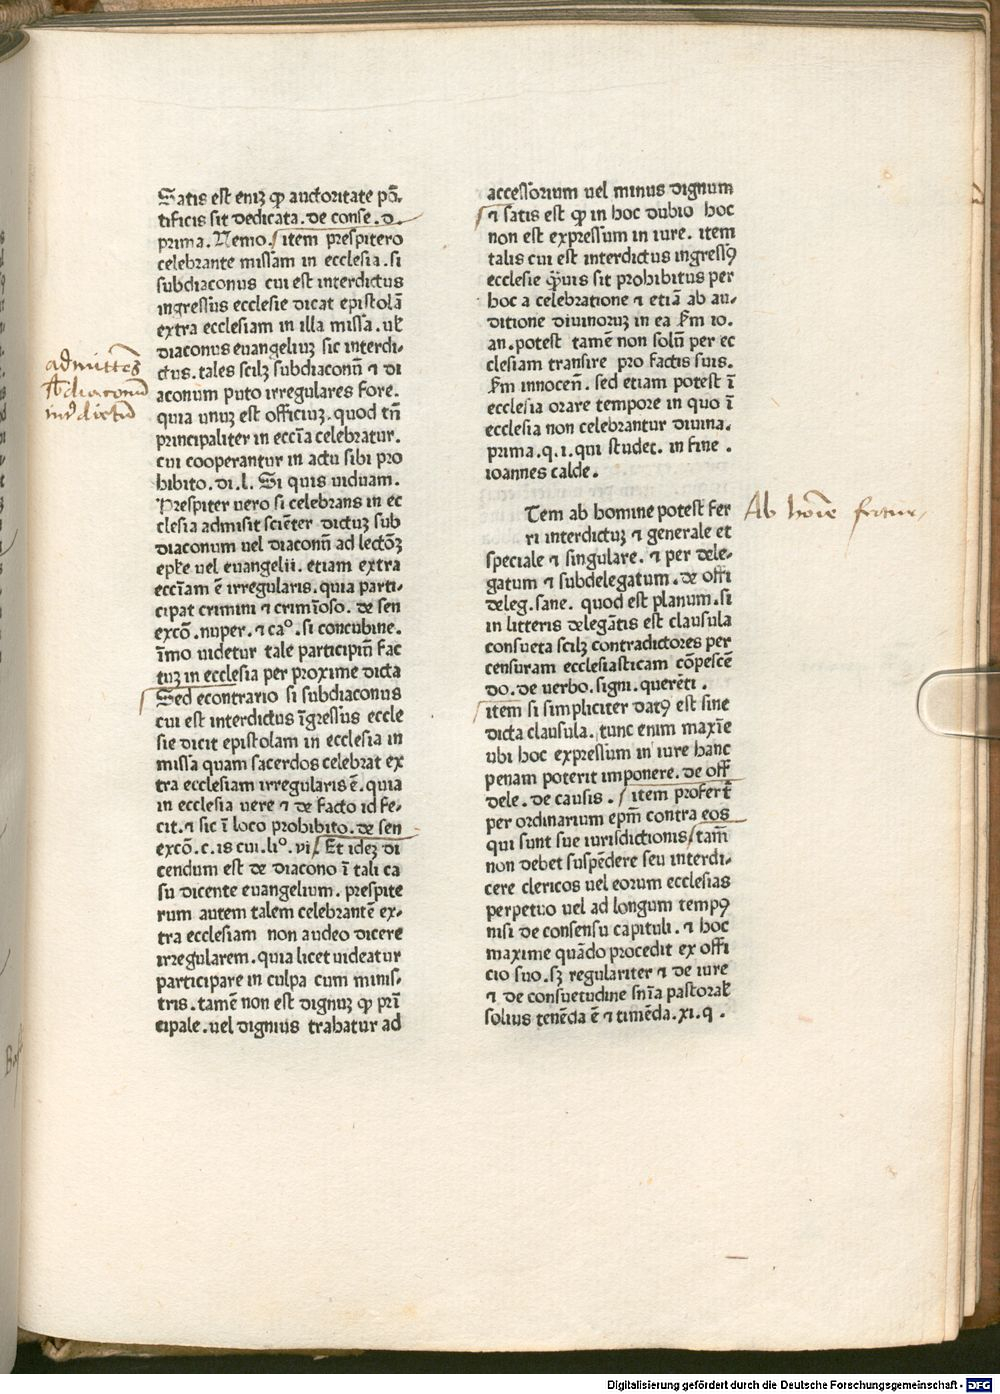 Satis est eniꝫ ꝙ auctoritate põ⸗
tificis sit dedicata. de conse. d.
prima. Nemo. item prespitero
celebrante missam in ecclesia. si
subdiaconus cui est interdictus
ingressus ecclesie dicat epistolã
extra ecclesiam in illa missa. ul̛
diaconus euangeliuꝫ sic interdi⸗
ctus. tales scilꝫ subdiaconũ ⁊ di
aconum puto irregulares fore.
quia unuꝫ est officiuꝫ. quod tñ
principaliter in eccĩa celebratur.
cui cooperantur in actu sibi pro
hibito. di. l. Si quis uiduam.
Prespiter uero si celebrans in ec
clesia admisit sciẽter dictuꝫ sub
diaconum uel diaconũ ad lectõꝫ
epl̛e uel euangelii. etiam extra
eccĩam ẽ irregularis. quia parti⸗
cipat crimini ⁊ crimĩoso. de sen
excõ. nuper. ⁊ ca°. si concubine.
ĩmo uidetur tale participiũ fac
tuꝫ in ecclesia per proxime dicta
Sed econtrario si subdiaconus
cui est interdictus ĩgressus eccle
sie dicit epistolam in ecclesia in
missa quam sacerdos celebrat ex
tra ecclesiam irregularis ẽ. quia
in ecclesia uere ⁊ de facto id fe⸗
cit. ⁊ sic ĩ loco prohibito. de sen
excõ. c. is cui. li°. vi. Et ideꝫ di
cendum est de diacono ĩ tali ca
su dicente euangelium. prespite
rum autem talem celebrantẽ ex⸗
tra ecclesiam non audeo dicere
irregularem. quia licet uideatur
participare in culpa cum minis⸗
tris. tamẽ non est dignuꝫ ꝙ prĩ
cipale. uel dignius trahatur ad
admittẽs
subdiaconũ
interdictũ
accessorium uel minus dignum
⁊ satis est ꝙ in hoc dubio hoc
non est expressum in iure. item
talis cui est interdictus ingressꝰ
ecclesie ꝙ̃uis sit prohibitus per
hoc a celebratione ⁊ etiã ab au⸗
ditione diuinoruꝫ in ea s̛m io.
an. potest tamẽ non solũ per ec
clesiam transire pro factis suis.
s̛m innoceñ. sed etiam potest ĩ
ecclesia orare tempore in quo ĩ
ecclesia non celebrantur diuina.
prima. q. i. qui studet. in fine.
ioannes calde.
Tem ab homine potest fer
ri interdictuꝫ ⁊ generale et
speciale ⁊ singulare. ⁊ per dele⸗
gatum ⁊ subdelegatum. de offi
deleg. sane. quod est planum. si
in litteris delegãtis est clausula
consueta scilꝫ contradictores per
censuram ecclesiasticam cõpescẽ
do. de uerbo. signi. querẽti.
item si simpliciter datꝰ est sine
dicta clausula. tunc enim maxĩe
ubi hoc expressum in iure hanc
penam poterit imponere. de off̃
dele. de causis. item profert̃
per ordinarium ep̃m contra eos
qui sunt sue iurisdictionis tam̃
non debet suspẽdere seu interdi⸗
cere clericos uel eorum ecclesias
perpetuo uel ad longum tempꝰ
nisi de consensu capituli. ⁊ hoc
maxime quãdo procedit ex offi
cio suo. sꝫ regulariter ⁊ de iure
⁊ de consuetudine snĩa pastoral̛
solius tenẽda ẽ ⁊ timẽda. xi. q.
Ab hoĩe fertur
Digitalisierung gefördert durch die Deutsche Forschungsgemeinschaft - DFG